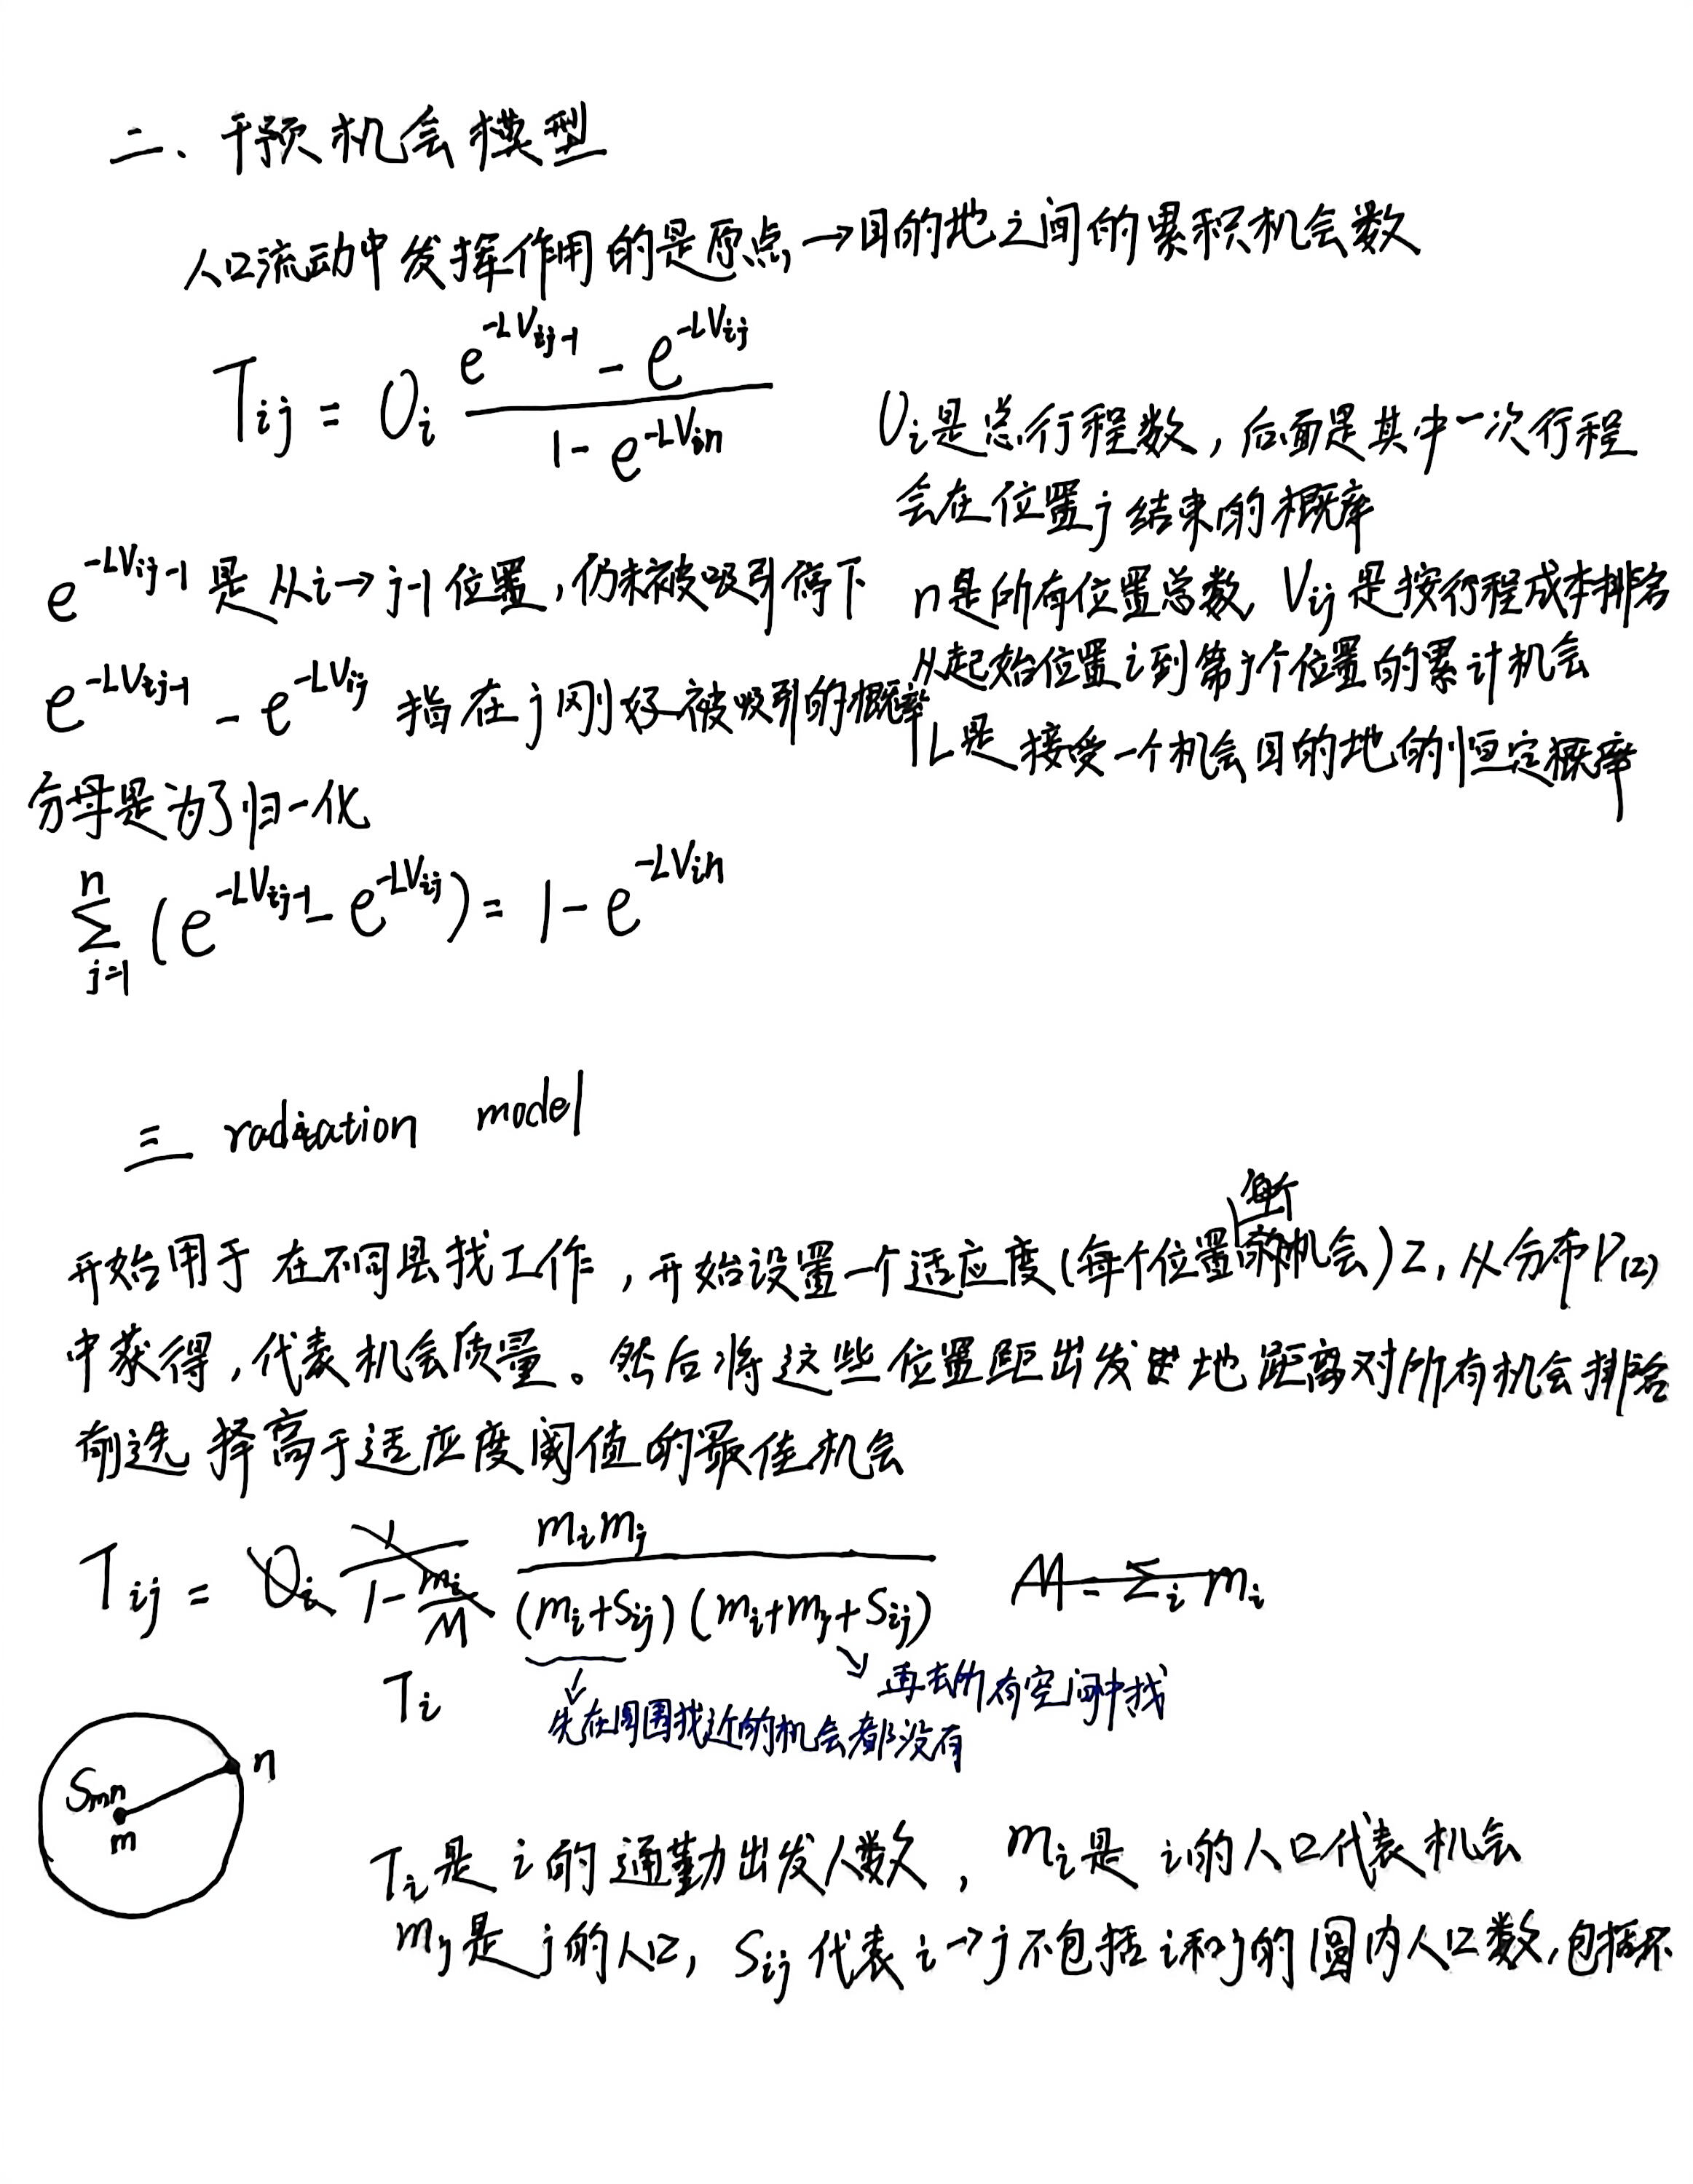 二、干预机会模型
人口流动中发挥作用的是原点→目的地之间的累积机会数
T_{ij} = O_i \frac{e^{-LV_{ij-1}} - e^{-LV_{ij}}}{1 - e^{-LV_{in}}}
O_i是总行程数，后面是其中一次行程
会在位置j结束的概率
n是所有位置总数，V_{ij}是按行程成本排名
从起始位置i到第j个位置的累计机会
L是接受一个机会目的地的恒定概率
e^{-LV_{ij-1}}是从i→j-1位置，仍未被吸引停下
e^{-LV_{ij-1}} - e^{-LV_{ij}} 指在j刚好被吸引的概率
分母是为了归一化
\sum_{j=1}^{n} (e^{-LV_{ij-1}} - e^{-LV_{ij}}) = 1 - e^{-LV_{in}}
三 radiation model
开始用于在不同县找工作，开始设置一个适应度(每个位置的机会)Z，从分布P(z)
中获得，代表机会质量。然后将这些位置距出发地距离对所有机会排名
前选择高于适应度阈值的最佳机会
T_{ij} = O_i \frac{1}{1 - \frac{m_i}{M}} \frac{m_i m_j}{(m_i+S_{ij})(m_i+m_j+S_{ij})} M = Σ_i m_i
T_i
再去所有空间中找
先在周围找近的机会都没有
S_{mn}
m
n
T_i是i的通勤出发人数，m_i是i的人口代表机会
m_j是j的人口，S_{ij}代表i→j不包括i和j的圆内人口数，包括环